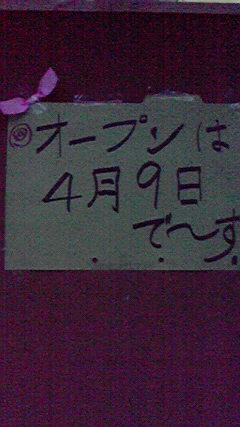 ◎オープンは
4月9日
で〜す